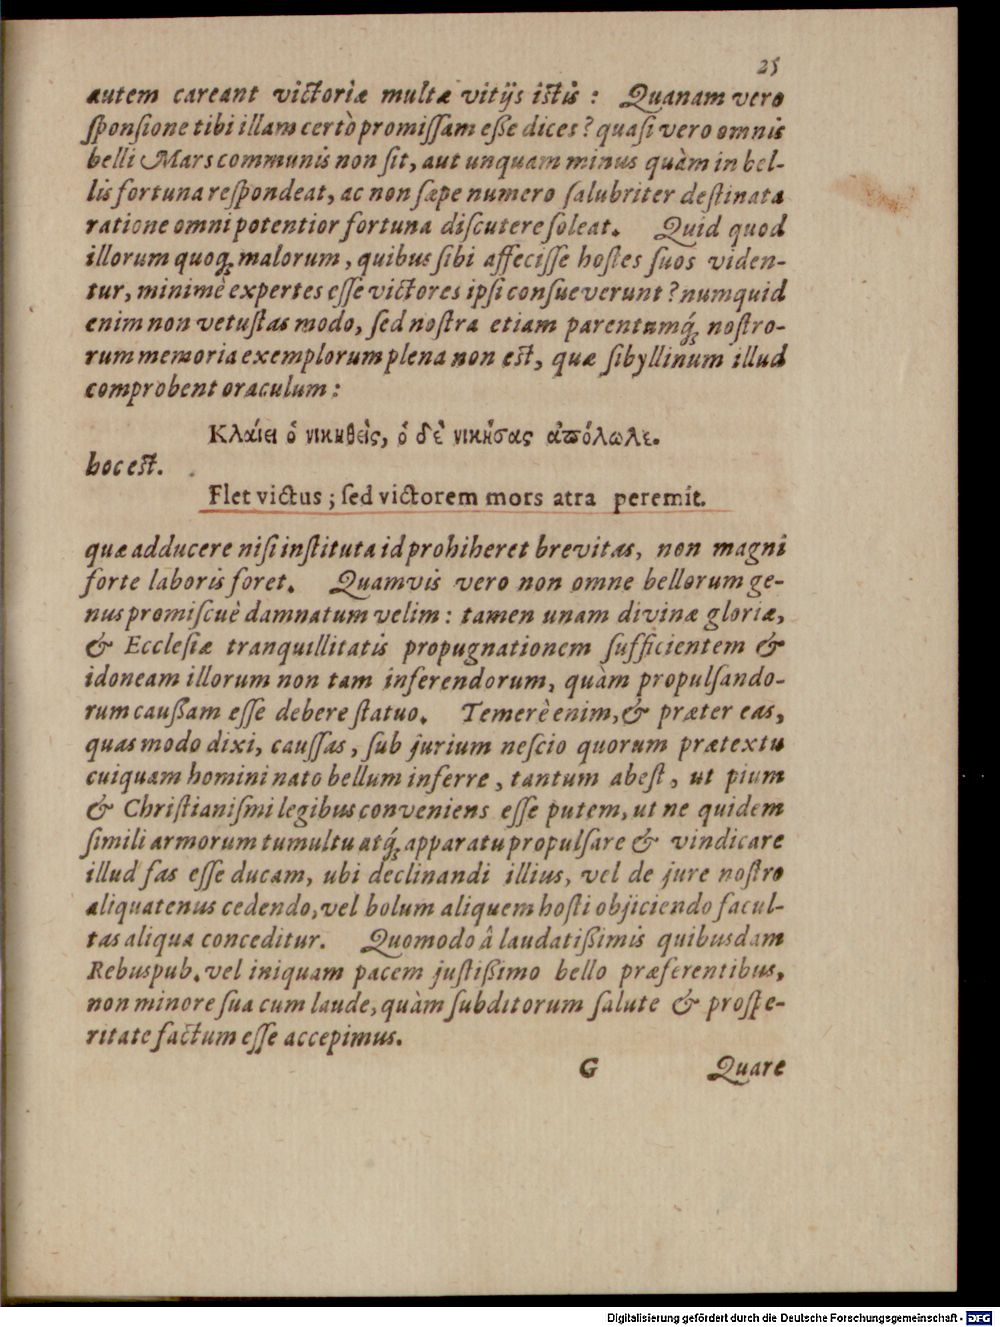 25
autem careant victoriæ multæ vitijs istis : Quanam vero
sponsione tibi illam certò promissam esse dices ? quasi vero omnis
belli Mars communis non sit, aut unquam minus quàm in bel-
lis fortuna respondeat, ac non sæpe numero salubriter destinata
ratione omni potentior fortuna discutere soleat. Quid quod
illorum quoq; malorum, quibus sibi affecisse hostes suos viden-
tur, minimè expertes esse victores ipsi consueverunt ? numquid
enim non vetustas modo, sed nostra etiam parentumq́; nostro-
rum memoria exemplorum plena non est, quæ sibyllinum illud
comprobent oraculum :
Κλαίει ὁ νικηθεὶς, ὁ δὲ νικήσας ἀπόλωλε.
hoc est.
Flet victus ; sed victorem mors atra peremit.
quæ adducere nisi instituta id prohiheret brevitas, non magni
forte laboris foret. Quamvis vero non omne bellorum ge-
nus promiscuè damnatum velim : tamen unam divinæ gloriæ,
& Ecclesiæ tranquillitatis propugnationem sufficientem &
idoneam illorum non tam inferendorum, quàm propulsando-
rum caussam esse debere statuo. Temerè enim, & præter eas,
quas modo dixi, caussas, sub jurium nescio quorum prætextu
cuiquam homini nato bellum inferre, tantum abest, ut pium
& Christianismi legibus conveniens esse putem, ut ne quidem
simili armorum tumultu atq́; apparatu propulsare & vindicare
illud fas esse ducam, ubi declinandi illius, vel de jure nostro
aliquatenus cedendo, vel bolum aliquem hosti objiciendo facul-
tas aliqua conceditur. Quomodo â laudatissimis quibusdam
Rebuspub. vel iniquam pacem justissimo bello præferentibus,
non minore sua cum laude, quàm subditorum salute & prospe-
ritate factum esse accepimus.
G Quare
Digitalisierung gefördert durch die Deutsche Forschungsgemeinschaft - DFG